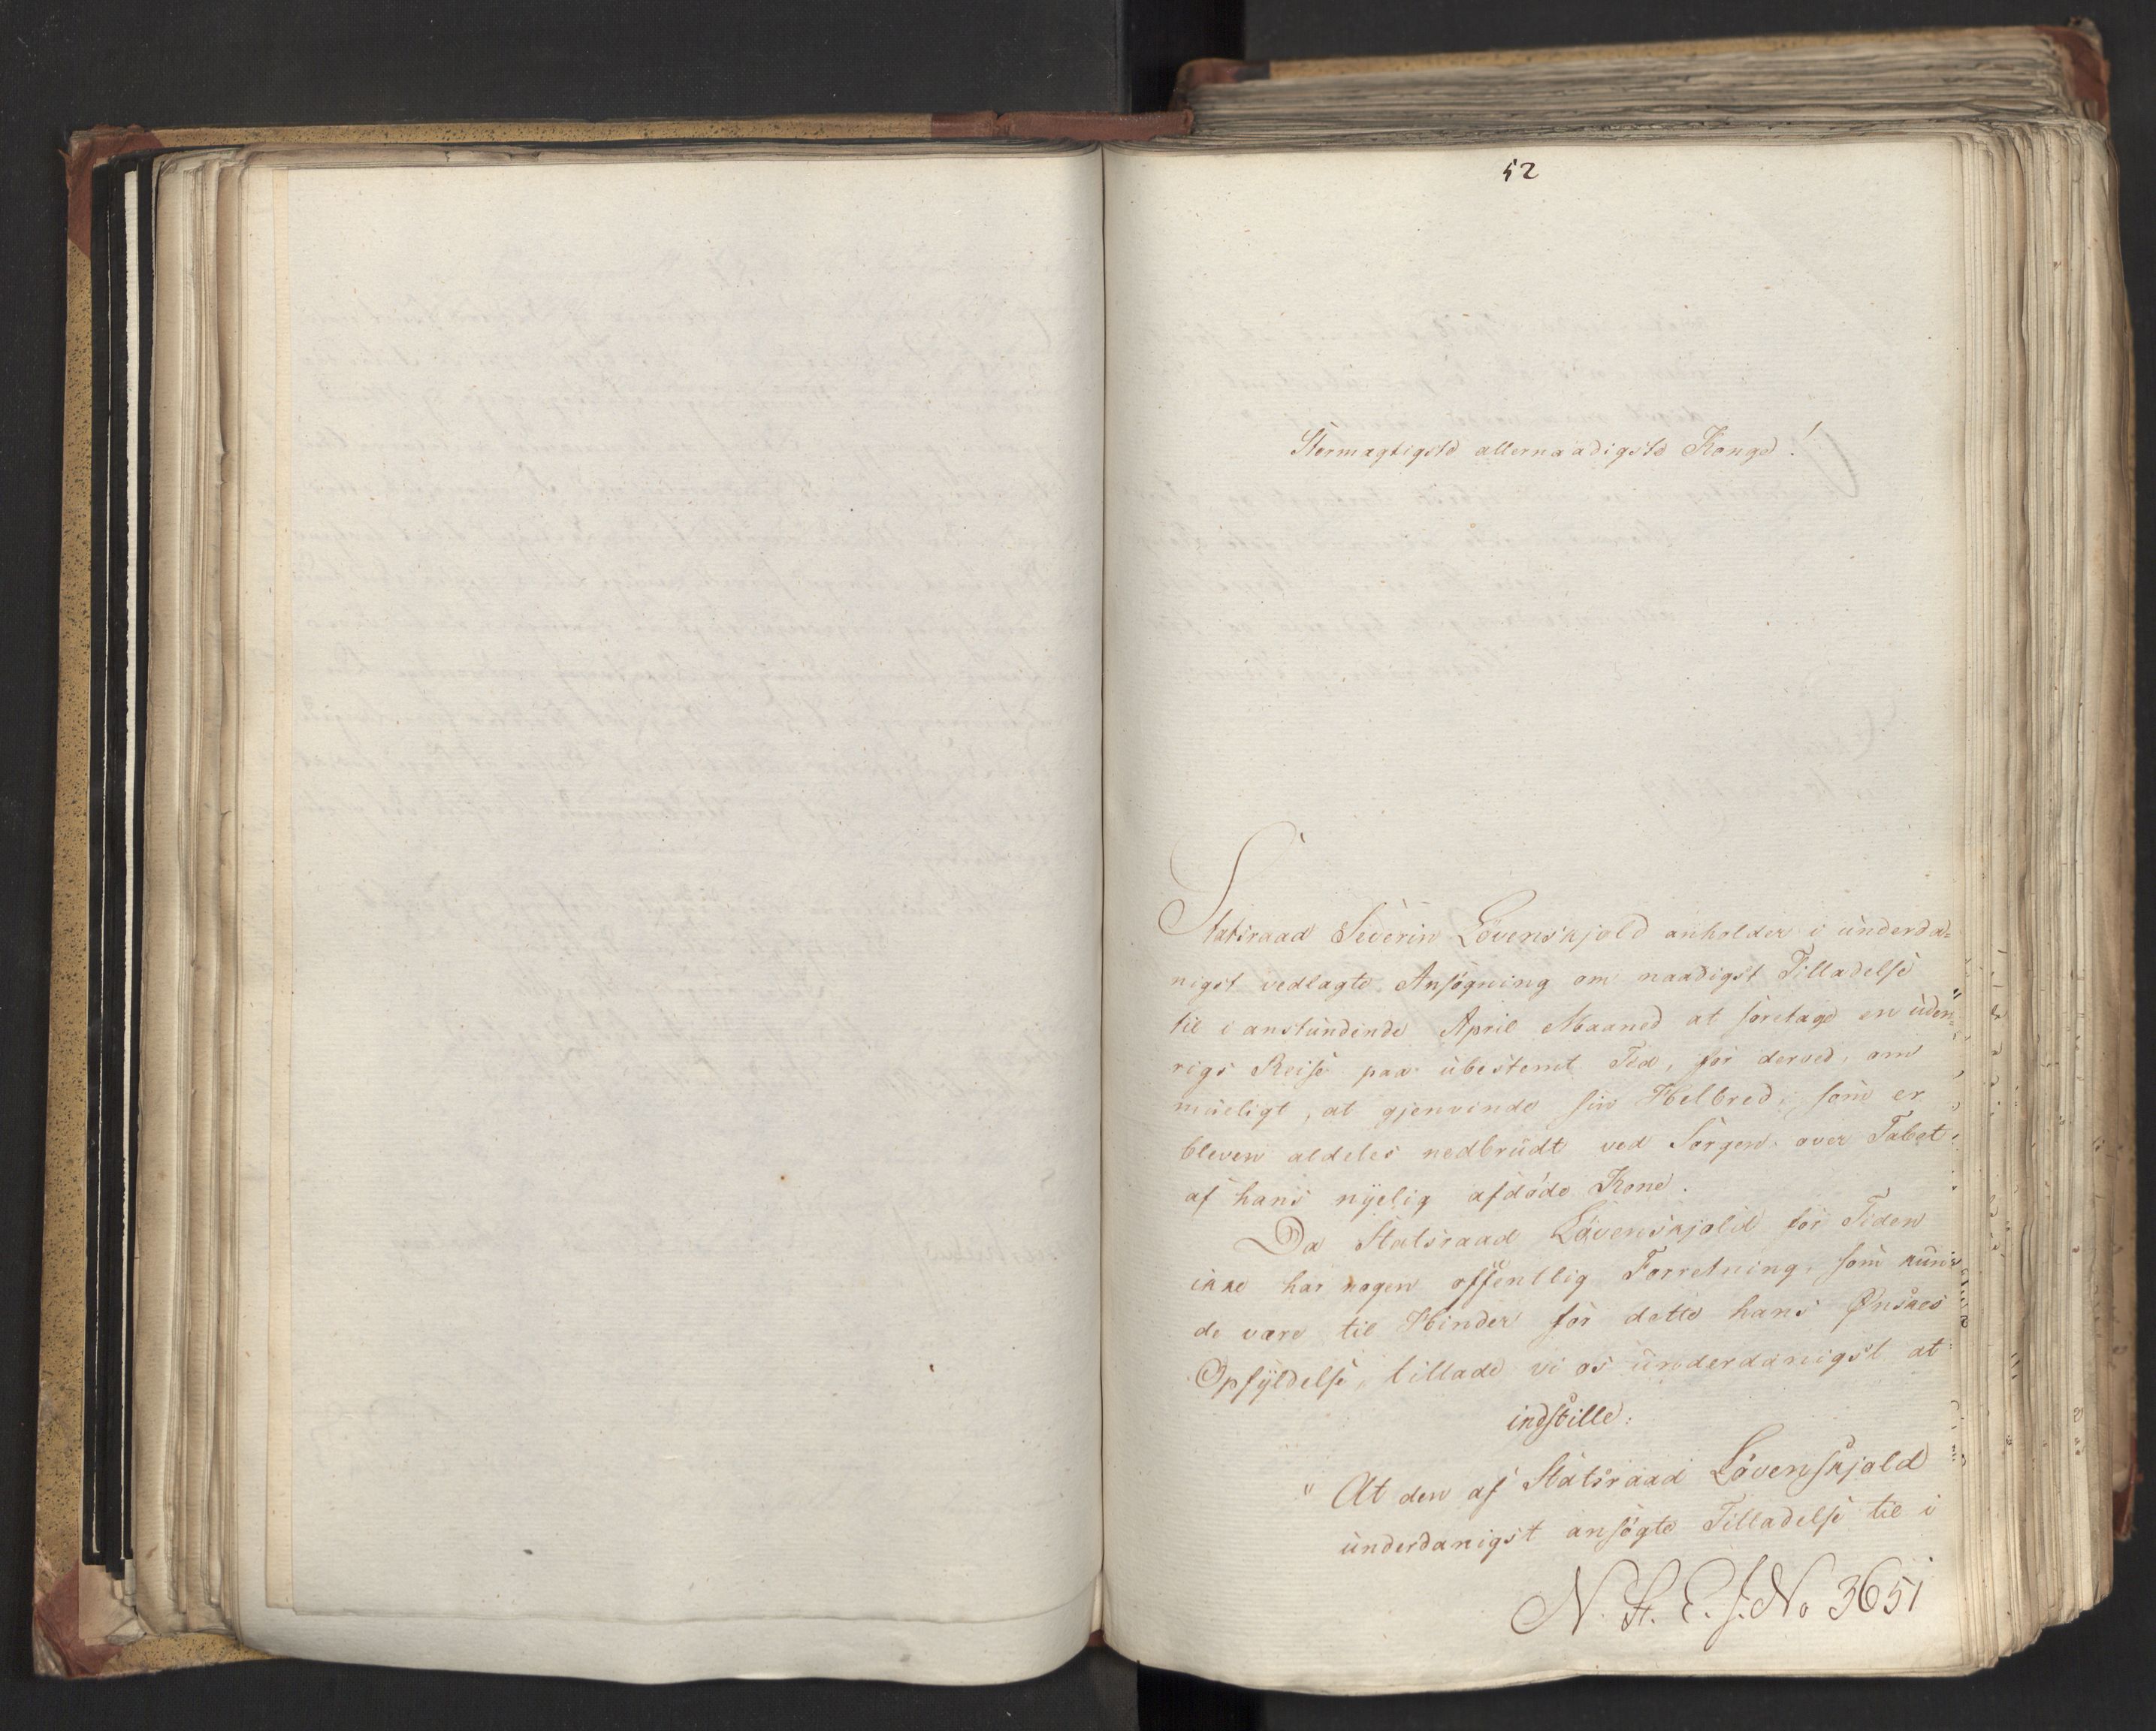 52
Stormægtigste allernaadigste Konge!
Statsraad Severin Løvenskjold anholder i underda=
nigst vedlagte Ansøgning om naadigst Tilladelse
til i anstundende April Maaned at foretage en uden=
rigs Reise paa ubestemt Tid, for derved, om
mueligt, at gjenvinde sin Helbred, som er
bleven aldeles nedbrudt ved Sorgen over Tabet
af hans nyelig afdøde Kone.
Da Statsraad Løvenskjold for Tiden
ikke har nogen offentlig Forretning, som kun=
de være til Hinder for dette hans Ønskes
Opfyldelse, tillade vi os underdanigst at
indstille:
" At den af Statsraad Løvenskjold
underdanigst ansøgte Tilladelse til i
N. St. E. J. No 3651